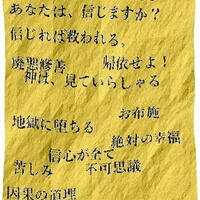 あなたは、信じますか？
信じれば救われる。
廃悪修善　帰依せよ！
神は、見ていらしゃる
お布施
地獄に堕ちる
絶対の幸福
信心が全て
苦しみ　不可思議
因果の道理